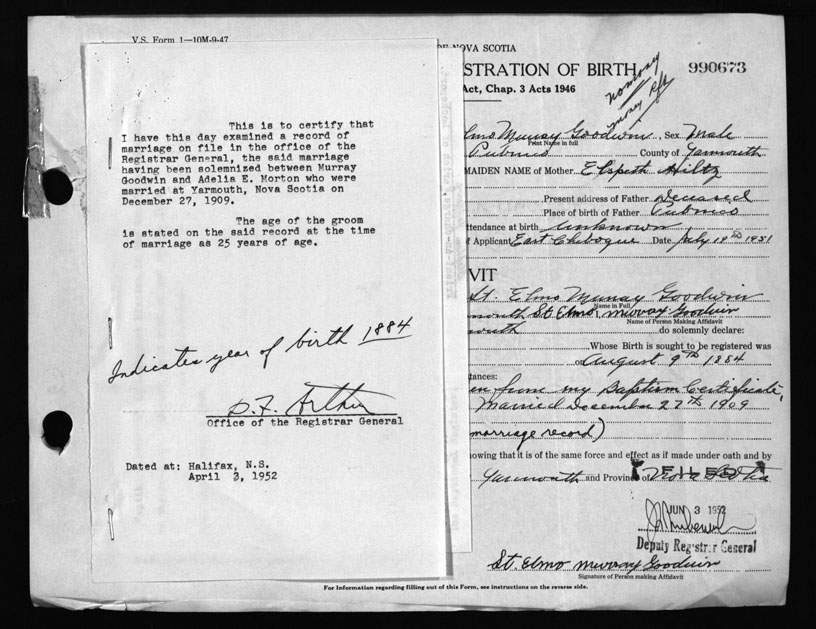 V.S. Form 1—10M-9-47
This is to certify that
I have this day examined a record of
marriage on file in the office of the
Registrar General, the said marriage
having been solemnized between Murray
Goodwin and Adelia E. Morton who were
married at Yarmouth, Nova Scotia on
December 27, 1909.
The age of the groom
is stated on the said record at the time
of marriage as 25 years of age.
Indicates year of birth 1884
D.F. Arthur
Office of the Registrar General
Dated at: Halifax, N.S.
April 3, 1952
NOVA SCOTIA
STRATION OF BIRTH
990673
Act, Chap. 3 Acts 1946
no money
money
lmo Murray Goodwin, Sex Male
Print Name in full
Pubnico County of Yarmouth
MAIDEN NAME of Mother Elspeth Hiltz
Present address of Father Deceased
Place of birth of Father Pubnico
ttendance at birth Unknown
f Applicant East Chebogue Date July 19th 1951
VIT
St. Elmo Murray Goodwin
Name in Full
mouth St. Elmo, Murray Goodwin
Name of Person Making Affidavit
outh do solemnly declare:
Whose Birth is sought to be registered was
on August 9th 1884
tances:
en from my Baptism Certificate,
Married December 27th 1909
(marriage record)
owing that it is of the same force and effect as if made under oath and by
Yarmouth and Province of Nova Scotia
FILED
JUN 3 1952
Deputy Registrar General
St. Elmo Murray Goodwin
Signature of Person making Affidavit
For Information regarding filling out of this Form, see instructions on the reverse side.